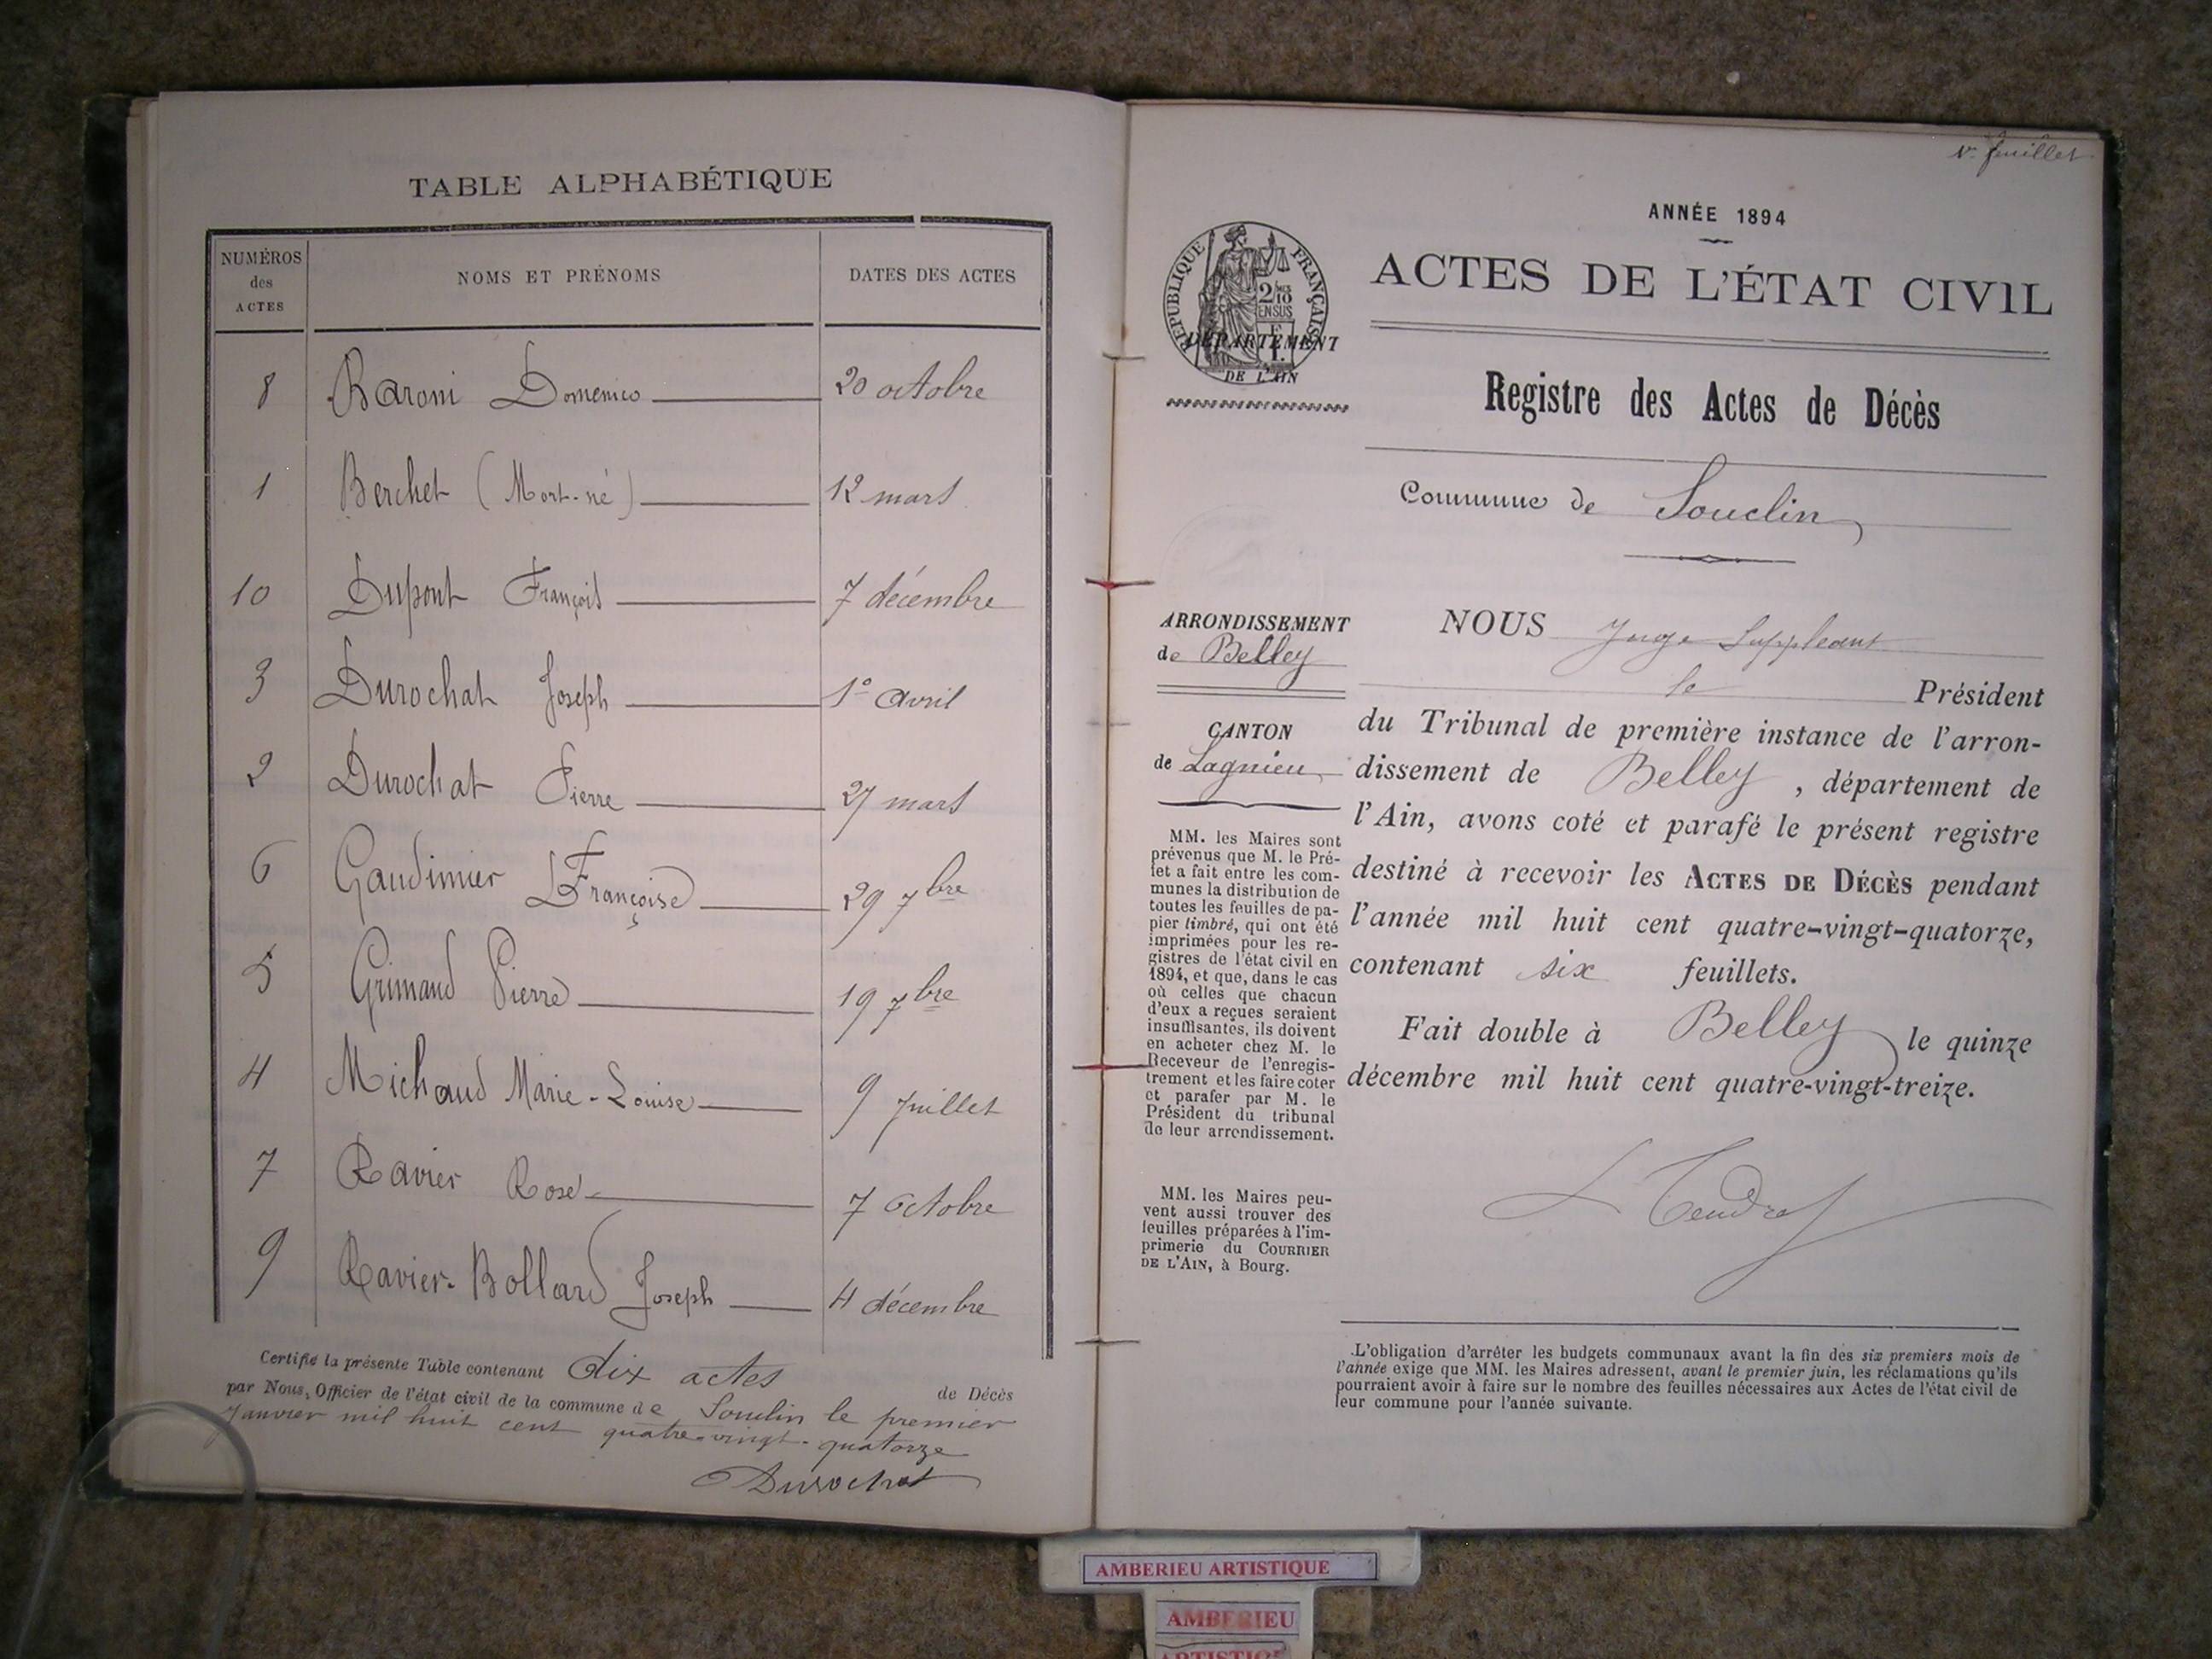 TABLE ALPHABÉTIQUE
NUMÉROS des ACTES NOMS ET PRÉNOMS DATES DES ACTES
8 Baroni Domenico 20 octobre
1 Berchet (Mort-né) 12 mars
10 Dupont François 7 décembre
3 Durochat Joseph 1º avril
2 Durochat Pierre 27 mars
6 Gaudimier Françoise 29 7bre
5 Grimaud Pierre 19 7bre
4 Michaud Marie-Louise 9 Juillet
7 Ravier Rose 7 octobre
9 Ravier-Bollard Joseph 4 décembre
Certifié la présente Table contenant dix actes de Décès
par Nous, Officier de l'état civil de la commune de Souclin le premier
Janvier mil huit cent quatre-vingt-quatorze
Durochat
feuillet
ANNÉE 1894
ACTES DE L'ÉTAT CIVIL
RÉPUBLIQUE FRANÇAISE
2/10 EN SUS
DÉPARTEMENT
DE L'AIN
Registre des Actes de Décès
Commune de Souclin
ARRONDISSEMENT
de Belley
CANTON
de Lagnieu
MM. les Maires sont
prévenus que M. le Pré-
fet a fait entre les com-
munes la distribution de
toutes les feuilles de pa-
pier timbré, qui ont été
imprimées pour les re-
gistres de l'état civil en
1894, et que, dans le cas
où celles que chacun
d'eux a reçues seraient
insuffisantes, ils doivent
en acheter chez M. le
Receveur de l'enregis-
trement et les faire coter
et parafer par M. le
Président du tribunal
de leur arrondissement.
MM. les Maires peu-
vent aussi trouver des
feuilles préparées à l'im-
primerie du COURRIER
DE L'AIN, à Bourg.
NOUS Juge Suppléant
le Président
du Tribunal de première instance de l'arron-
dissement de Belley, département de
l'Ain, avons coté et parafé le présent registre
destiné à recevoir les ACTES DE DÉCÈS pendant
l'année mil huit cent quatre-vingt-quatorze,
contenant six feuillets.
Fait double à Belley le quinze
décembre mil huit cent quatre-vingt-treize.
L'obligation d'arrêter les budgets communaux avant la fin des six premiers mois de
l'année exige que MM. les Maires adressent, avant le premier juin, les réclamations qu'ils
pourraient avoir à faire sur le nombre des feuilles nécessaires aux Actes de l'état civil de
leur commune pour l'année suivante.
AMBERIEU ARTISTIQUE
AMBERIEU
ARTISTIQUE